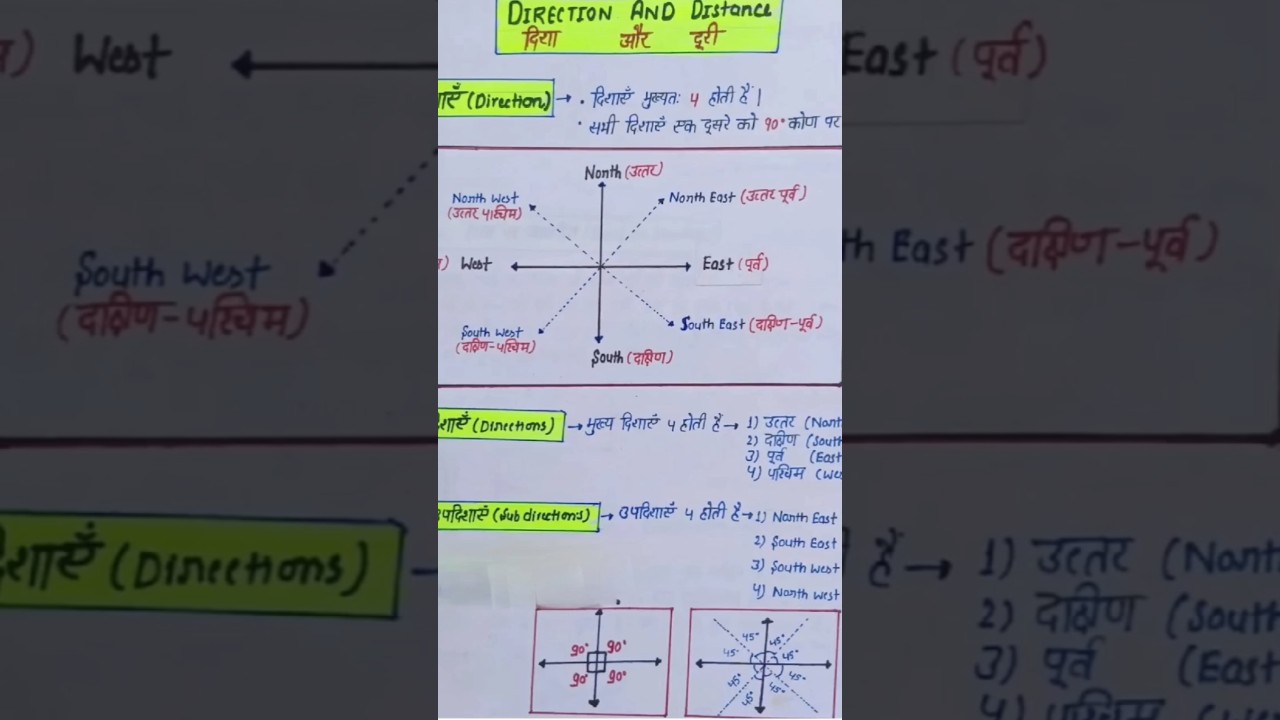 DIRECTION AND Distance
दिशा और दूरी
(Direction) → • दिशाएँ मुख्यतः 4 होती हैं |
• सभी दिशाएँ एक दूसरे को 90° कोण पर
North (उत्तर)
North West
(उत्तर पश्चिम)
North East (उत्तर पूर्व)
West
East (पूर्व)
South West
(दक्षिण-पश्चिम)
South East (दक्षिण-पूर्व)
South (दक्षिण)
(Directions) → मुख्य दिशाएँ 4 होती हैं → 1) उत्तर (North
2) दक्षिण (South
3) पूर्व (East
4) पश्चिम (We
उपदिशाएँ (Sub directions) → उपदिशाएँ 4 होती हैं → 1) North East
2) South East
3) South West
4) North West
90° 90°
90° 90°
45° 45°
45° 45°
45° 45°
45° 45°
West
East (पूर्व)
South West
(दक्षिण-पश्चिम)
th East (दक्षिण-पूर्व)
(Directions)
हैं → 1) उत्तर (North
2) दक्षिण (South
3) पूर्व (East
4) पश्चिम (We